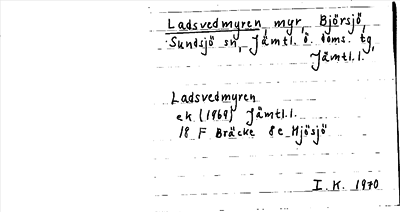 Ladsvedmyren, myr, Björsjö,
Sundsjö sn, Jämtl. ö. doms. tg,
Jämtl. l.
Ladsvedmyren
ek. (1969) Jämtl. l.
18 F Bräcke 8e Hjösjö
I. K. 1970